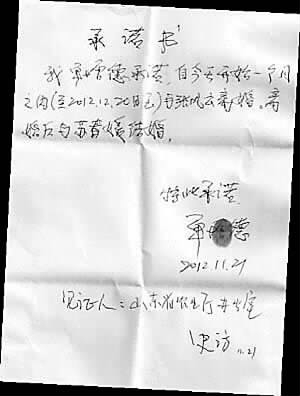 承诺书
我单增德承诺,自今天开始一个月
之内(至2012.12.20日已)与张凤云离婚。离
婚后与苏春媛结婚。
特此承诺
单增德
2012.11.21
见证人:山东省农业厅办公室
史访 11.21